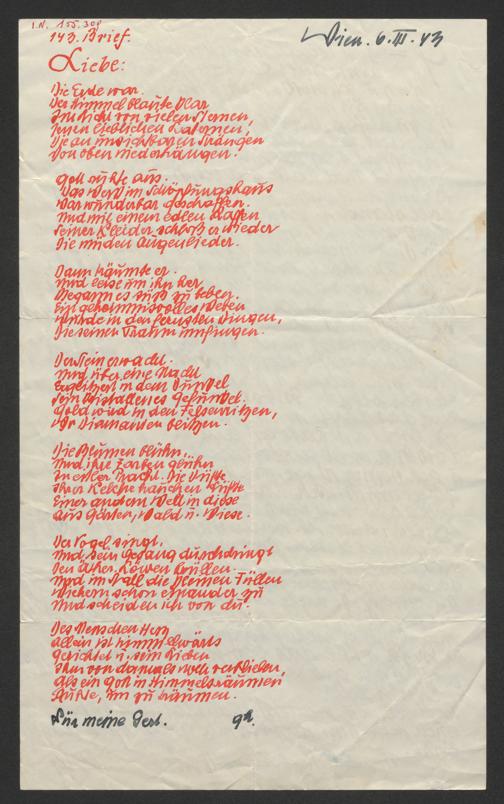 I.N. 155.308
143. Brief.
Wien. 6. III. 43
Liebe:
Die Erde war.
Der Himmel blaute klar
Im Licht von vielen Sternen,
Ihren lieblichen Laternen,
Die an unsichtbaren Strängen
Von oben niederhängen.
Gott ruhte aus.
Das Werk im Schöpfungshaus
War wunderbar geschaffen.
Und mit einem edlen Raffen
Seiner Kleider schloß er wieder
Die müden Augenlieder.
Dann träumte er.
Und leise um ihn her
Begann es süß zu beben.
Ein geheimnisvolles Weben
Wurde in den fernsten Dingen,
Die seinen Traum umfingen.
Der Stein erwacht.
Und über eine Nacht
Erglitzert in dem Dunkel
Sein kristallenes Gefunkel.
Gold wird in den Felsenritzen,
Wo Diamanten blitzen.
Die Blumen blühn,
Und ihre Farben glühn
In edler Pracht. Die Düfte
Ihrer Kelche hauchen Lüfte
Einer andern Welt in diese
Aus Gärten, Wald u. Wiese.
Der Vogel singt,
Und sein Gesang durchdringt
Den Äther. Löwen brüllen.
Und im Stall die kleinen Füllen
Wiehern schon einander zu
Und scheiden ich von du.
Des Menschen Herz
Allein ist himmelwärts
Gerichtet u. sein Lieben
Ihm von damals noch verblieben,
Als ein Gott in Himmelsräumen
Ruhte, um zu träumen.
Für meine Gert.